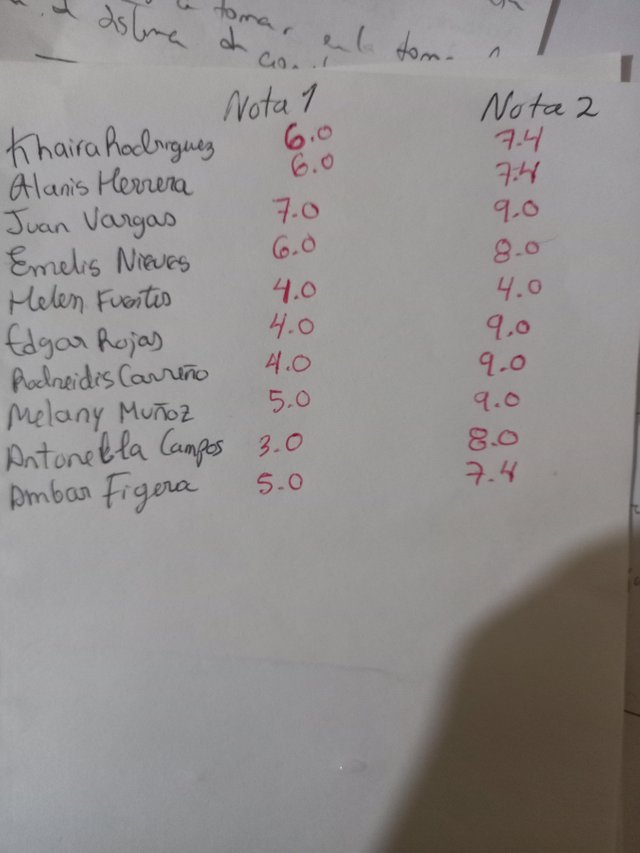 a toma, en la tom
distima
Nota 1 Nota 2
Khaira Rodriguez 6.0 7.4
Alanis Herrera 6.0 7.4
Juan Vargas 7.0 9.0
Emelis Nieves 6.0 8.0
Helen Fuentes 4.0 4.0
Edgar Rojas 4.0 9.0
Rodneidis Carreño 4.0 9.0
Melany Muñoz 5.0 9.0
Antonella Campos 3.0 8.0
Ambar Figera 5.0 7.4